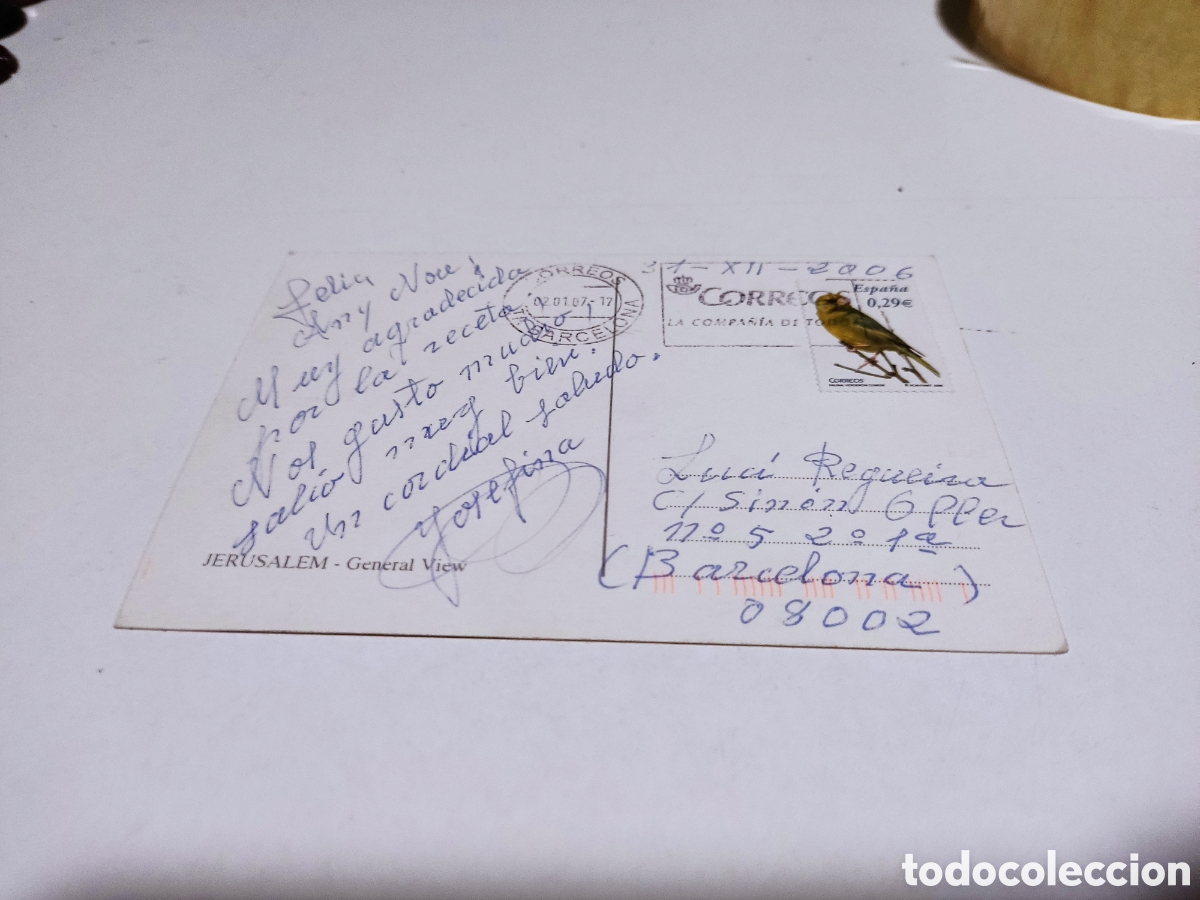 Felis Nou
Any
Muy agradecida
por la receta.
Nos gusto mucho,
salió muy bien.
Un cordial saludo.
Josefina
JERUSALEM - General View
31-XII-2006
CORREOS
02.01.07-17
BARCELONA
CORREOS
LA COMPAÑÍA DE
España
0,29€
CORREOS
Regueira
C/ Simón Oller
nº 5 2º 1ª
(Barcelona)
08002
todocoleccion